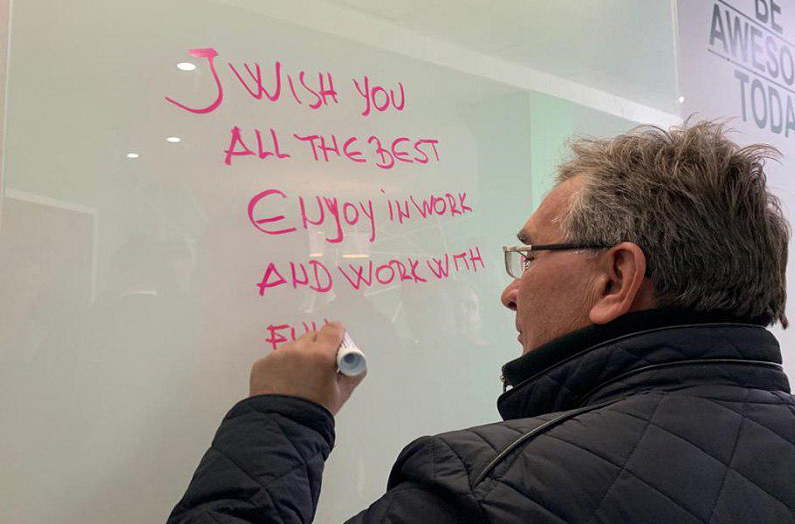 J WISH YOU
ALL THE BEST
ENJOY IN WORK
AND WORK WITH
BE
AWESO
TODA